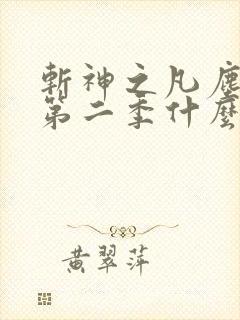 斬神之凡塵
第二季什麼
黃翠萍